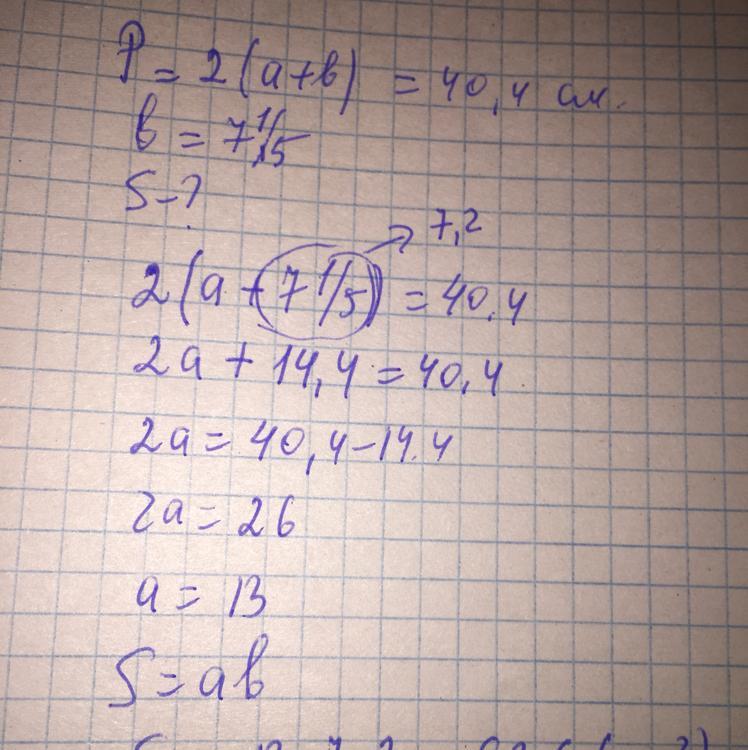 P = 2(a+в) = 40,4 см.
в = 7 1/5
S - ?
7,2
2(a + 7 1/5) = 40,4
2a + 14,4 = 40,4
2a = 40,4 - 14.4
2a = 26
a = 13
S = aв